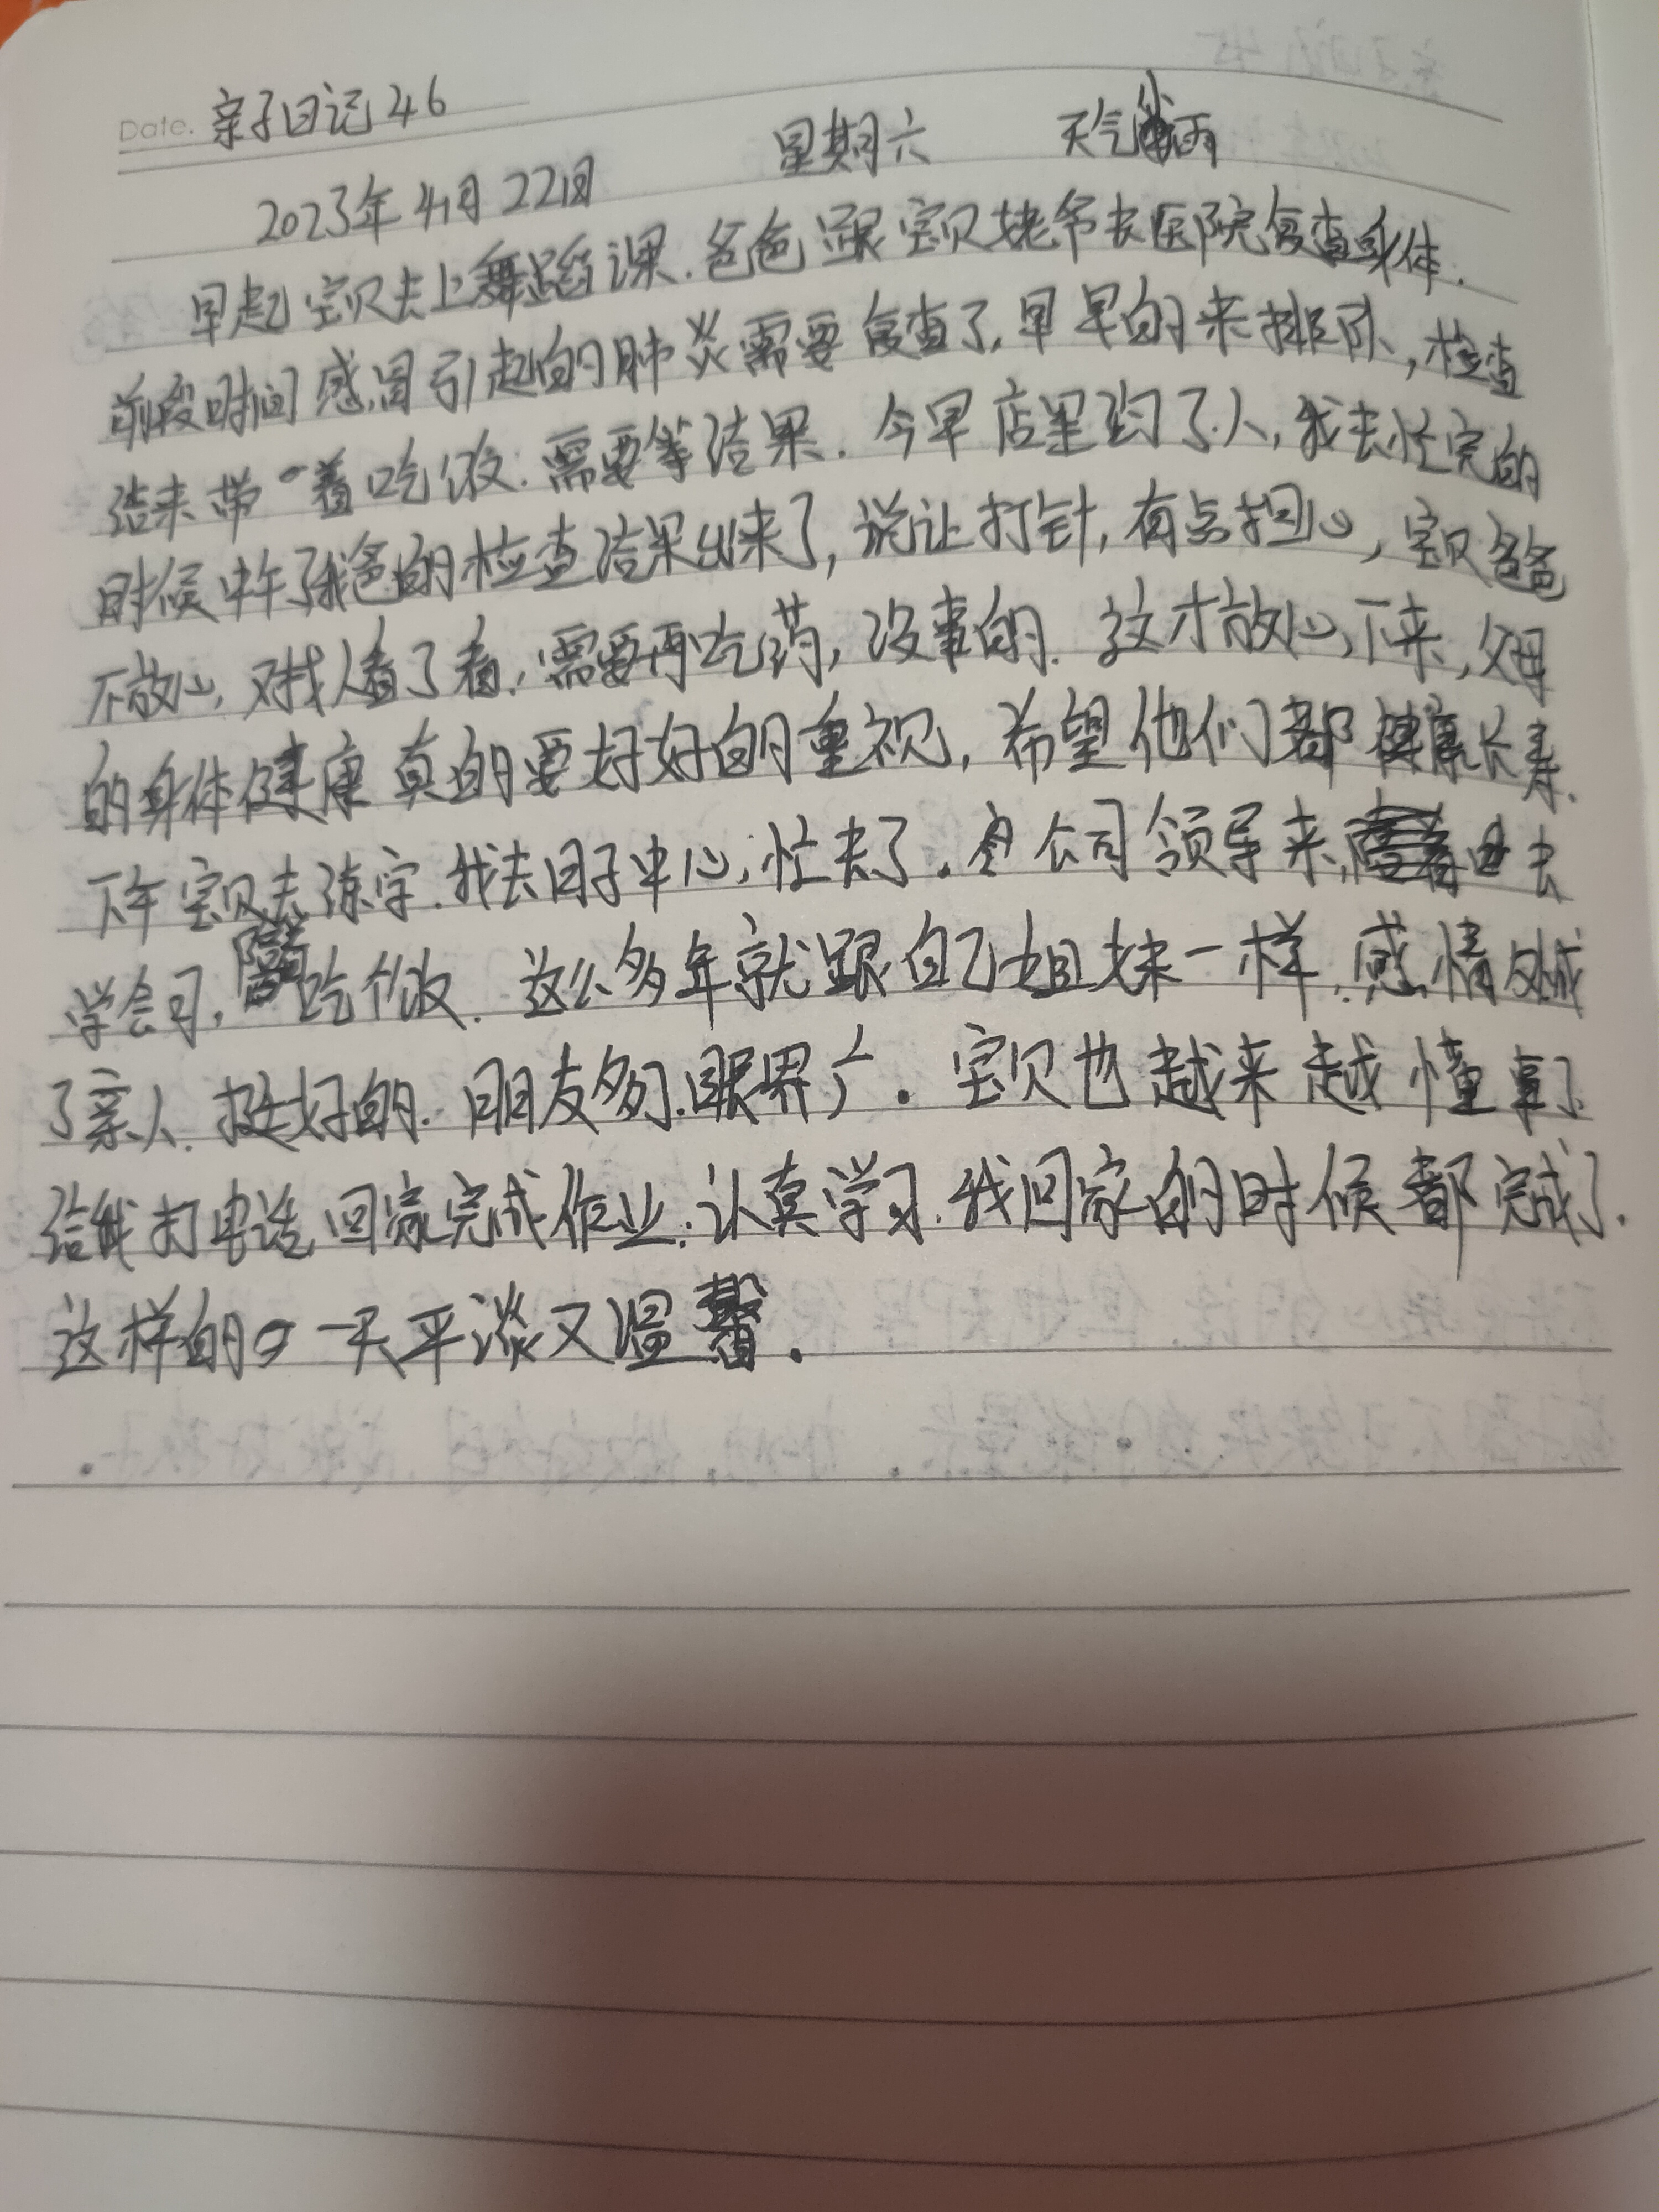 Date. 亲子日记46
2023年4月22日 星期六 天气雨
早起宝贝去上舞蹈课.爸爸跟宝贝姥爷去医院复查身体.
前段时间感冒引起的肺炎需要复查了,早早的来排队,检查
结来带着吃饭.需要等结果.今早店里约了人,我去忙完的
时候中午了我爸的检查结果出来了,说让打针,有点担心,宝贝爸爸
不放心,对找人看了看,需要再吃药,没事的.这才放心下来,父母
的身体健康真的要好好的重视,希望他们都健康长寿.
下午宝贝去练字.我去月子中心,忙去了.公司领导来,过去
学会习,陪吃个饭.这么多年就跟自己姐妹一样.感情处成
了亲人.挺好的.朋友多了.眼界广.宝贝也越来越懂事了
给我打电话回家完成作业.认真学习.我回家的时候都完成了.
这样的一天平淡又温馨.